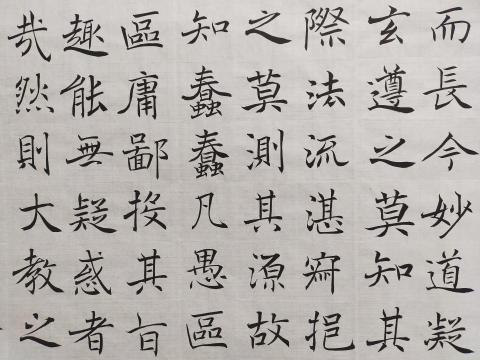 而長今妙道凝
玄遵之莫知其
際法流湛寂挹
之莫測其源故
知蠢蠢凡愚區
區庸鄙投其旨
趣能無疑惑者
哉然則大教之